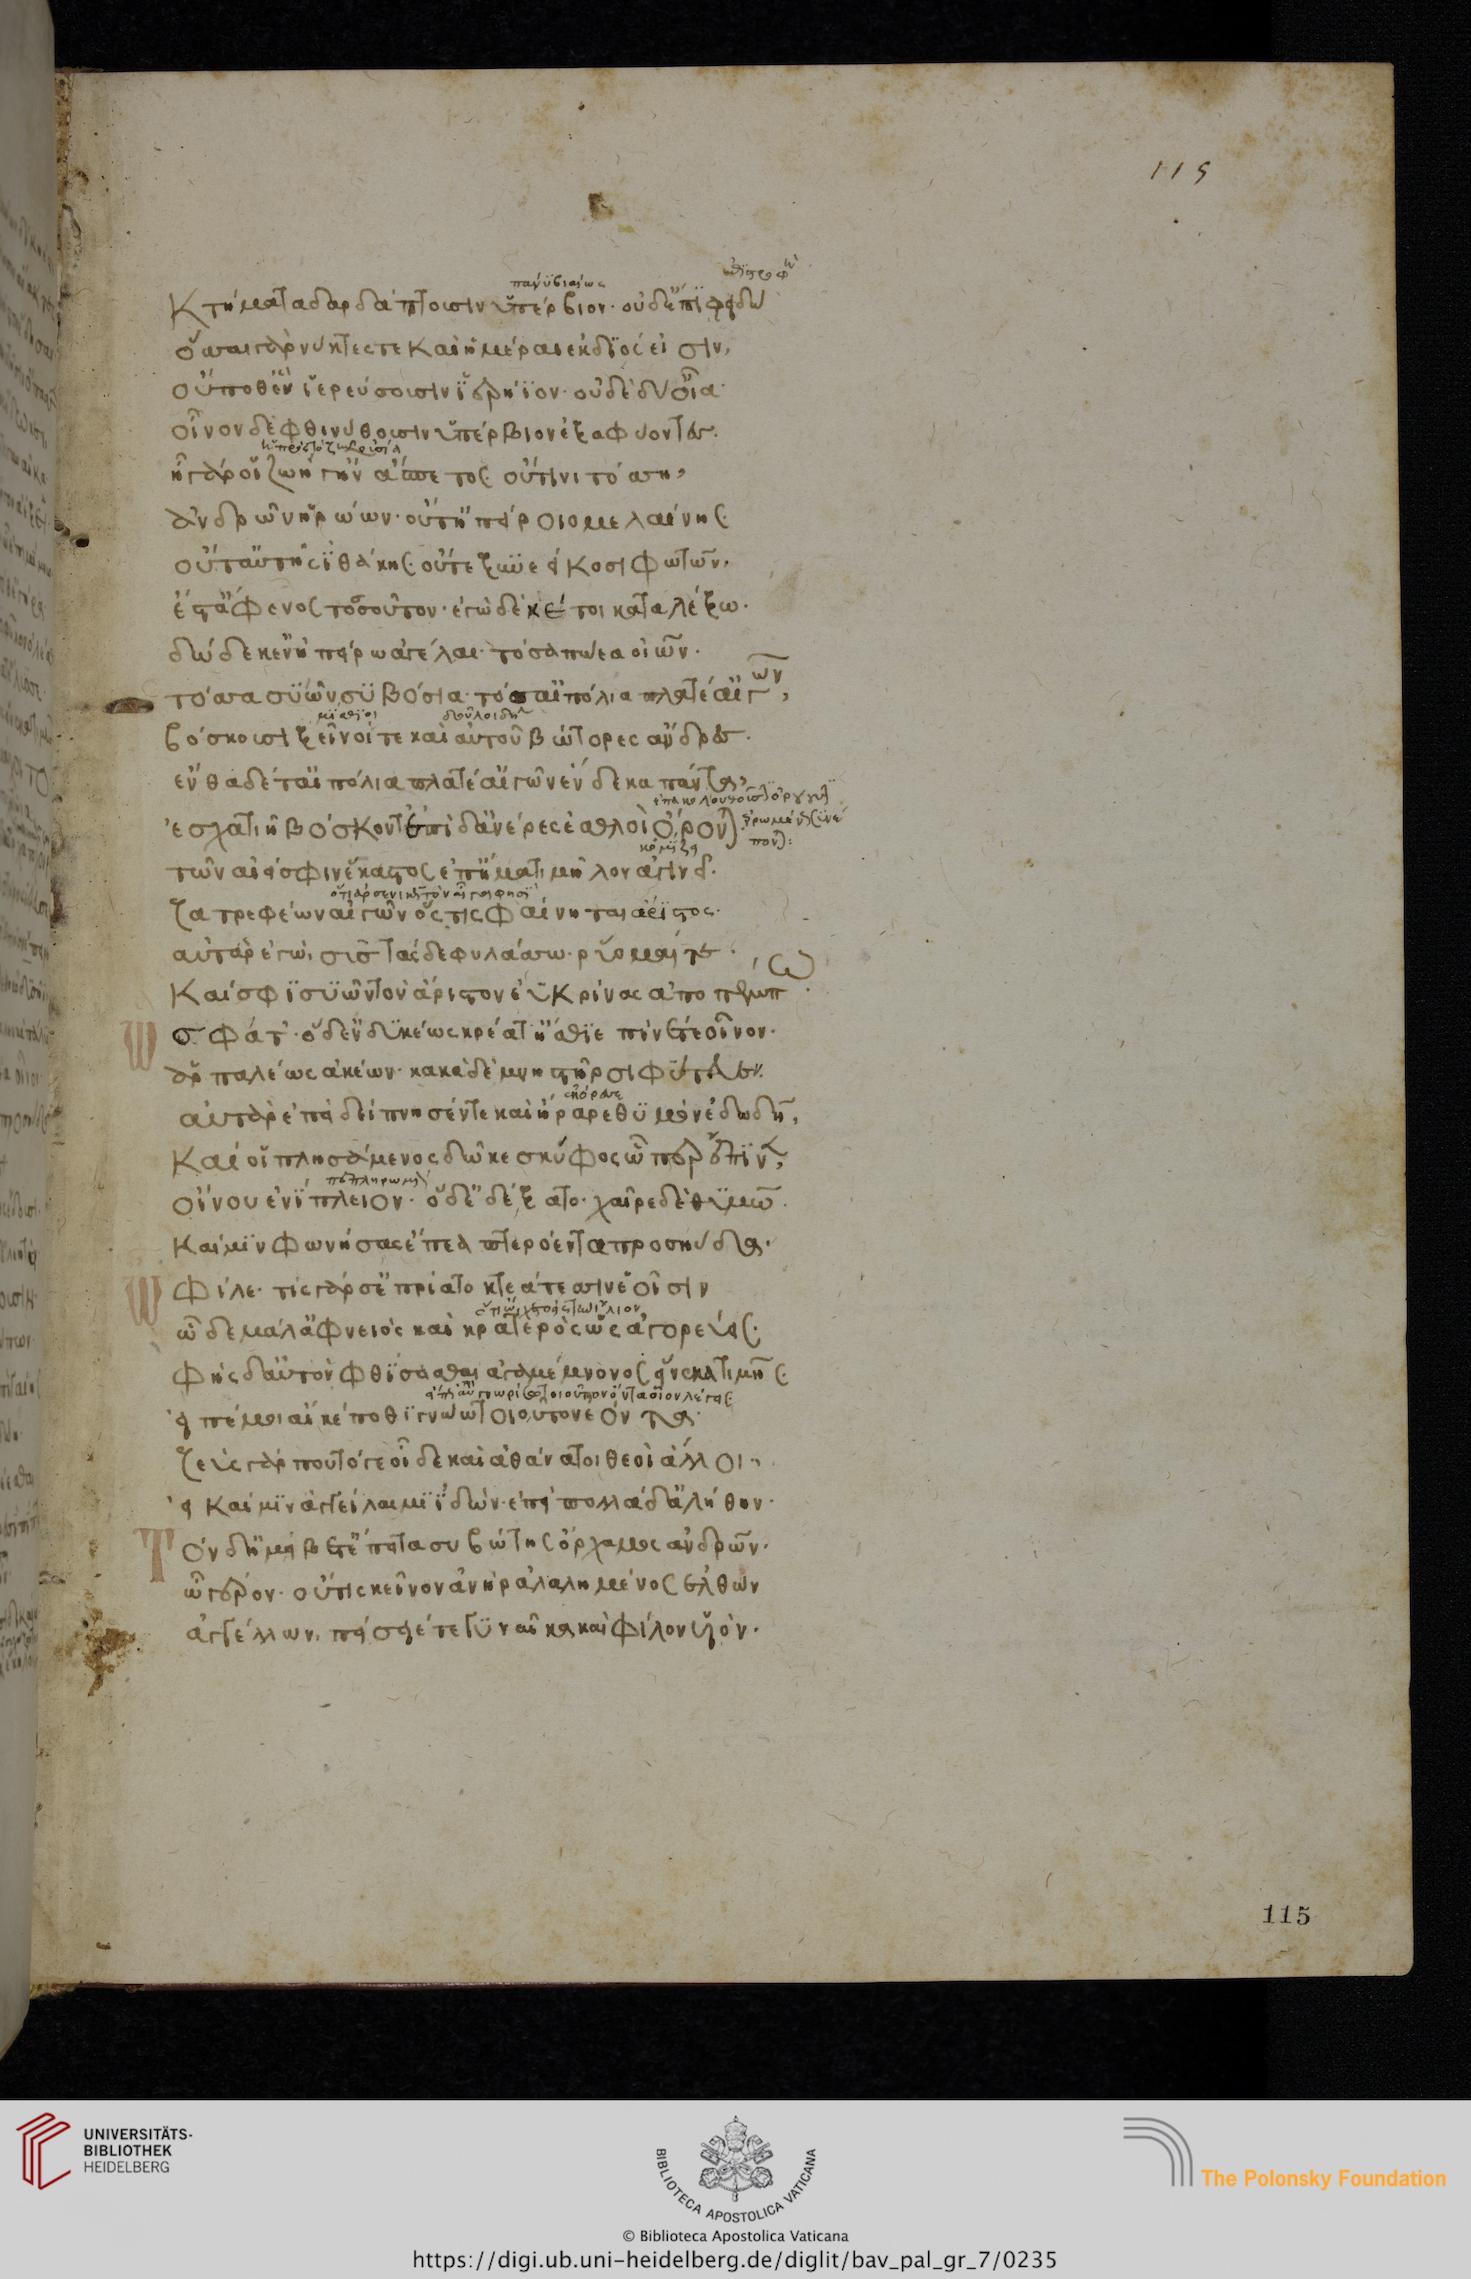 115
πάνϋ βιαίως
κτήματα δαρδάπτουσιν ὑπέρβιον· οὐδ' ἔπι φειδώ
ὅσσαι γὰρ νύκτες τε καὶ ἡμέραι ἐκ διός εἰσιν,
οὔποθ' ἓν ἱερεύσουσιν ἱρήϊον· οὐδὲ δύ' οἶα·
οἶνον δὲ φθινύθουσιν ὑπέρβιον ἐξαφύοντες.
ἦ γάρ οἱ ζωή γ' ἦν ἄσπετος· οὔτινι τόσση,
ἀνδρῶν ἡρώων· οὔτ' ἠπείροιο μελαίνης·
οὔτ' αὐτῆς ἰθάκης· οὔτε ξυνεείκοσι φωτῶν,
ἔστ' ἄφενος τοσοῦτον· ἐγὼ δέ κέ τοι καταλέξω·
δώδεκ' ἐν ἠπείρω ἀγέλαι· τόσα πώεα οἰῶν·
τόσσα συῶν συβόσια· τόσ' αἰπόλια πλατέ' αἰγῶν,
δοῦλοι
βόσκουσι ξεῖνοί τε καὶ αὐτοῦ βώτορες ἄνδρες·
ἐνθάδέ τ' αἰπόλια πλατέ' αἰγῶν ἕνδεκα πάντα,
ἐσχατιῆ βόσκοντ' ἐπὶ δ' ἀνέρες ἐσθλοὶ ὄρονται·
τῶν αἰεί σφιν ἕκαστος ἐπ' ἤματι μῆλον ἀγινεῖ·
ζατρεφέων αἰγῶν ὅς τις φαίνηται ἄριστος·
αὐτὰρ ἐγὼ, σῦς τάσδε φυλάσσω ῥύομαί τε·
καί σφι συῶν τὸν ἄριστον ἐῢ κρίνας ἀποπέμπω·
ὣς φάτ'· ὁ δ' ἐνδυκέως κρέα τ' ἤσθιε πῖνέ τε οἶνον·
ἁρπαλέως ἀκέων· κακὰ δὲ μνηστῆρσι φύτευεν.
αὐτὰρ ἐπεὶ δείπνησέν τε καὶ ἤραρε θυμὸν ἐδωδῆ,
καί οἱ πλησάμενος δῶκε σκύφος ὧπερ ἔπινεν,
πεπληρωμέ
οἴνου ἐνίπλειον· ὁ δ' ἐδέξατο· χαῖρε δὲ θυμῶ·
καί μιν φωνήσας ἔπεα πτερόεντα προσηύδα·
ὦ φίλε· τίς γάρ σε πρίατο κτεάτεσσιν ἑοῖσιν
ὧδε μάλ' ἀφνειὸς καὶ κρατερὸς ὡς ἀγορεύεις·
φὴς δ' αὐτὸν φθίσασθαι ἀγαμέμνονος εἵνεκα τιμῆς·
εἰπέ μοι αἴ κέ ποθι γνώω τοιοῦτον ἐόντα·
ζεὺς γάρ που τόγε οἶδε καὶ ἀθάνατοι θεοὶ ἄλλοι,
εἰ καί μιν ἀγγείλαιμι ἰδών· ἐπὶ πολλὰ δ' ἀλήθην·
τὸν δ' ἠμείβετ' ἔπειτα συβώτης ὄρχαμος ἀνδρῶν·
ὦ γέρον· οὔτις κεῖνον ἀνὴρ ἀλαλημένος ἐλθὼν
ἀγγέλλων, πείσειέ γε γυναῖκα καὶ φίλον υἱόν·
115
UNIVERSITÄTS-
BIBLIOTHEK
HEIDELBERG
BIBLIOTECA APOSTOLICA VATICANA
The Polonsky Foundation
© Biblioteca Apostolica Vaticana
https://digi.ub.uni-heidelberg.de/diglit/bav_pal_gr_7/0235